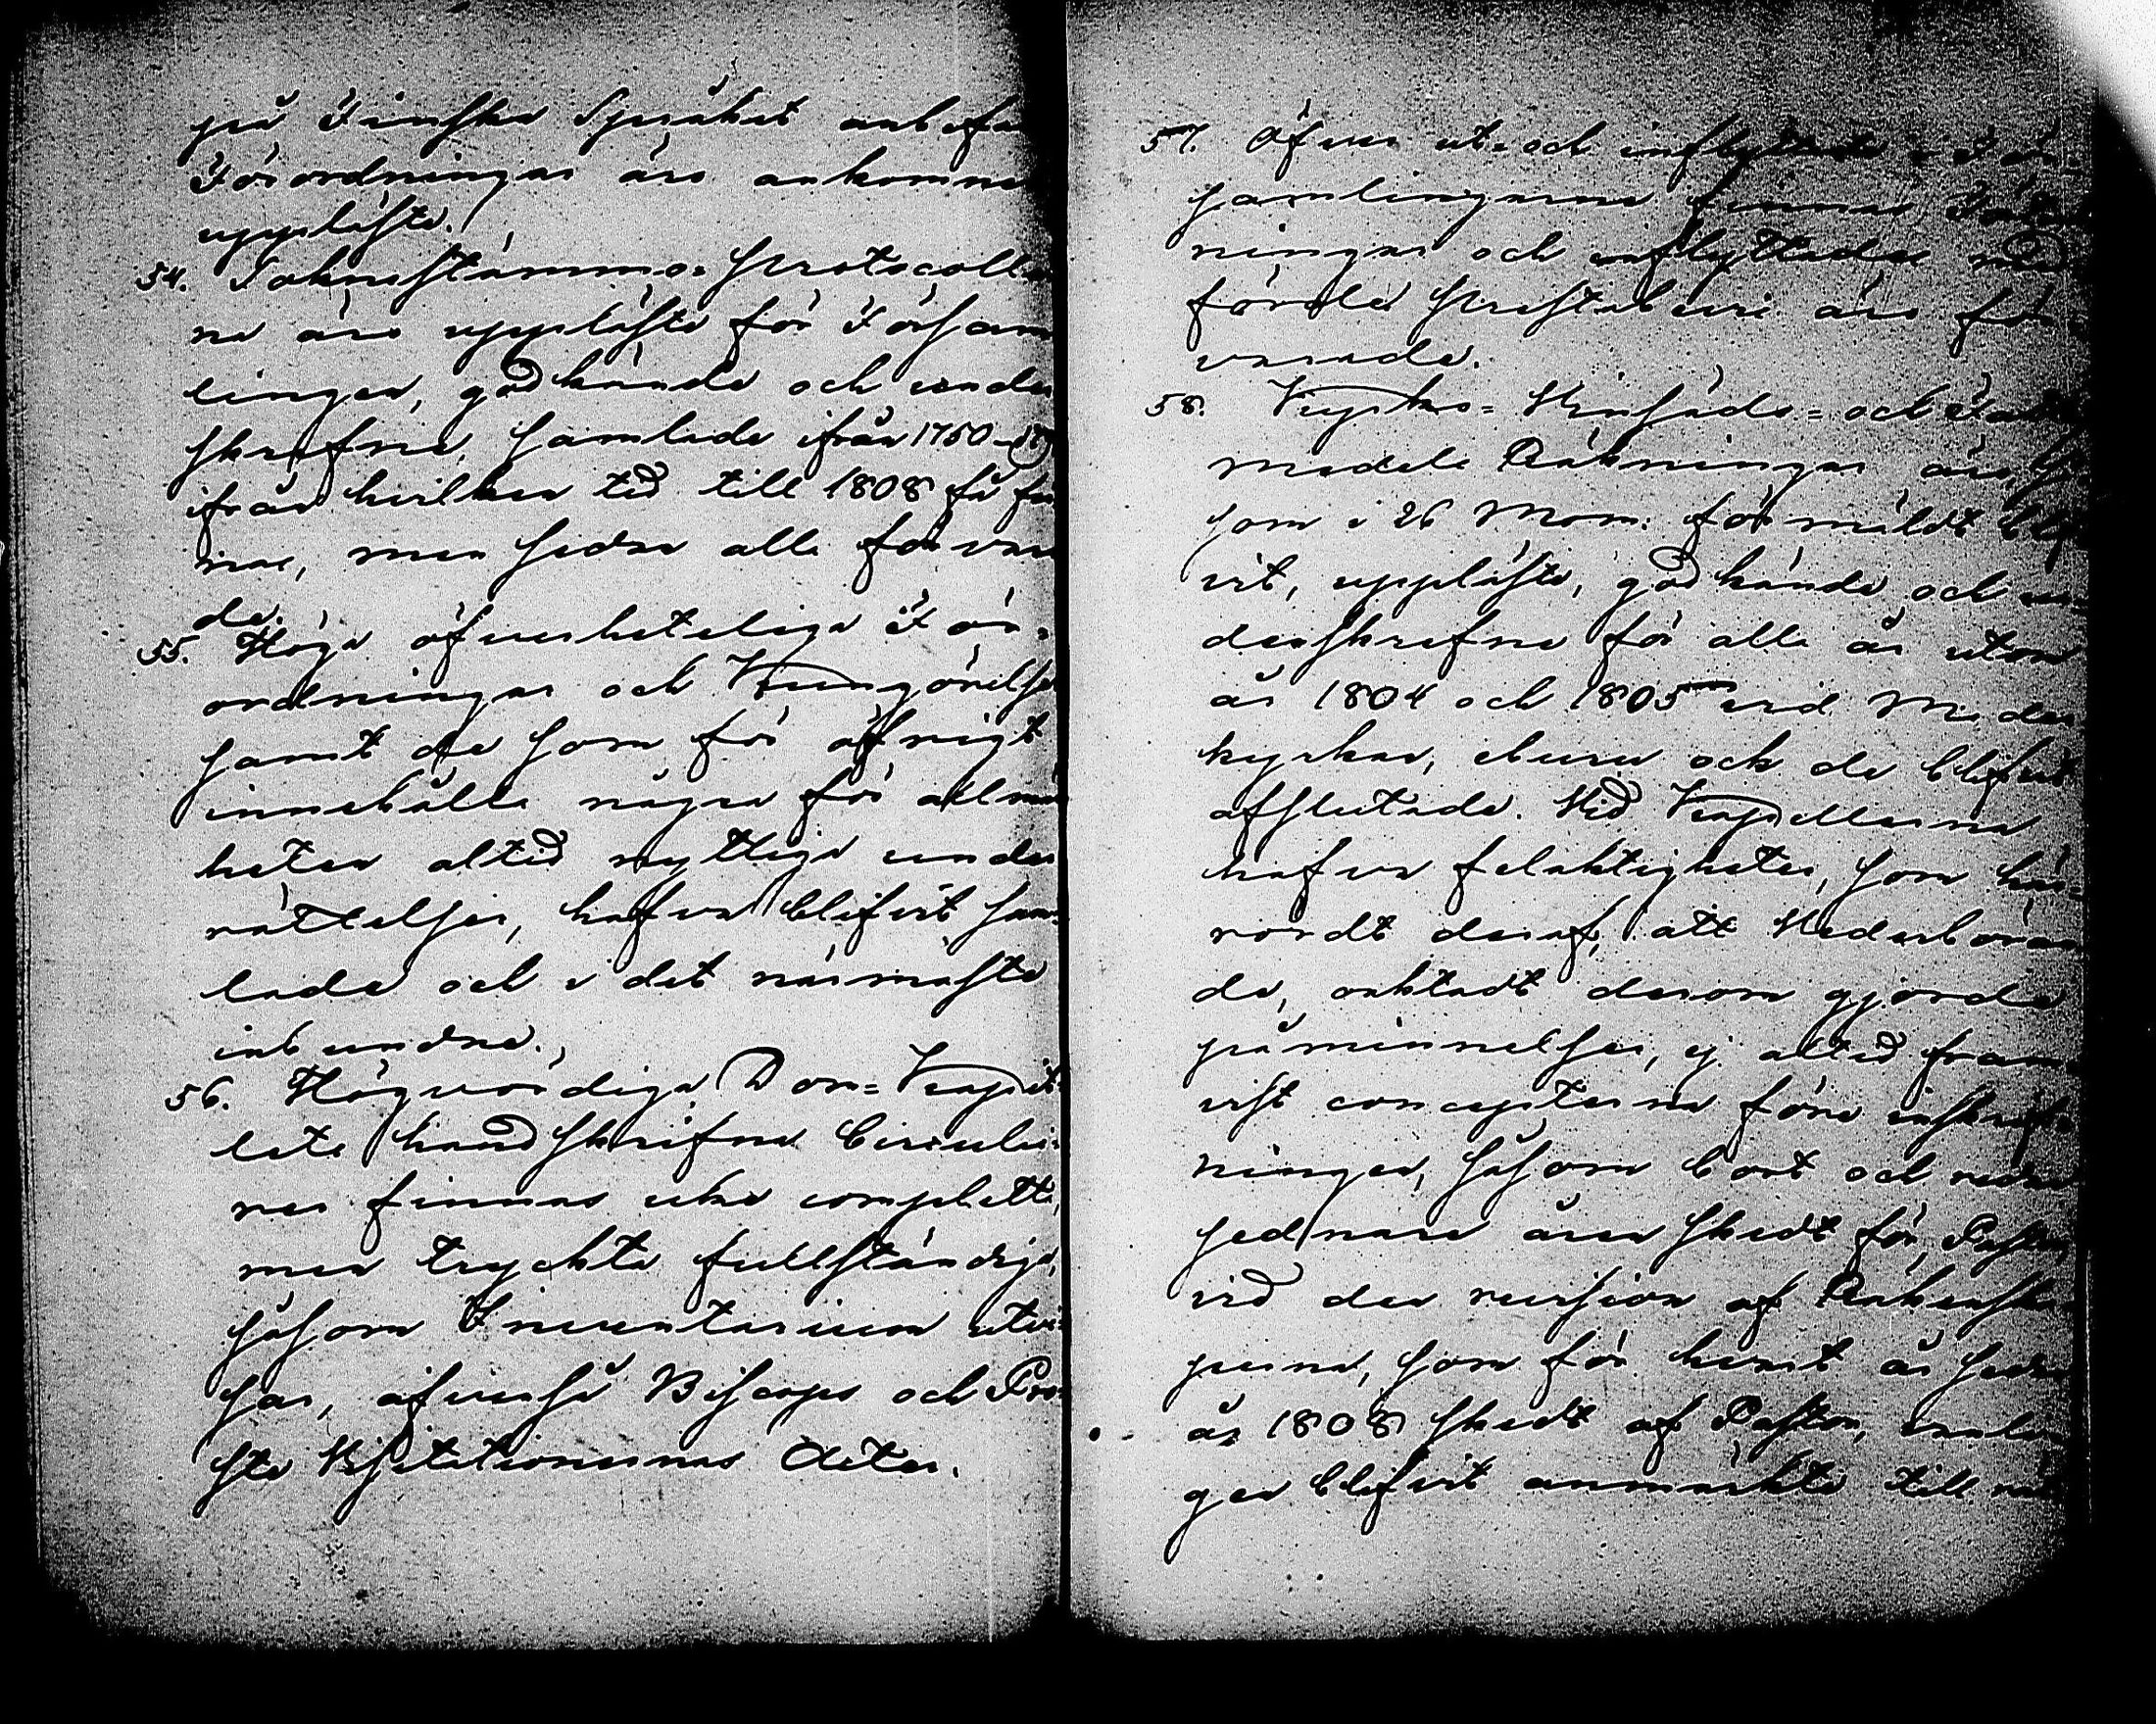 på Finska Språket utkom
Förordningar äro ankomne
uppläste.
54. Sokneståmmo= Protocoller
na äro uppläste för Försam
lingen, godkände och under
skrefne, samlade ifrån 1750
ifrån hvilken tid till 1808 få fin
nas, men sedan alla förvara
de.
55. Höga öfverheteliga För=
ordningar och Kungörelser
samt de som för öfrigt
innehålla några för allmän
heten altid nyttiga under
rättelser, hafva blifvit sam=
lade och i det närmaste
inbundne.
56. Högvördiga Dom= Kapit
lets handskrifna Circulai=
rer finnas icke complette,
men tryckta fullständiga,
såsom Inventarium utvi=
sar, äfvenså Biskops och Pro=
ste Visitationernas Acter.
57. Öfver ut= och inflyttade i För
samlingarne finnas Förteck
ningar och inflyttades med
förde Prestabevis äro för
varade.
58. Kyrko= Kronosäds= och Fatt
medels Räkningar äro, så
som i 26 Mom: förmäldt blif
vit, uppläste, godkände och un=
derskrefne för alla år utom
år 1804 och 1805 vid Moder
kyrkan, ehuru ock de blifvit
afslutade. Vid Kapellerna
hafva felaktigheter, som här=
rördt deraf, att Vederböran
de, oaktadt derom gjorde
påminnelser, ej altid fram
vist concepterna före inskrif=
ningen, såsom bort och nedan
sednare åren skedt för Pastor
vid den revision af Räkenska
perna, som för hvart år sedan
år 1808 skedt af Pastor,
gen blifvit anmärkte till